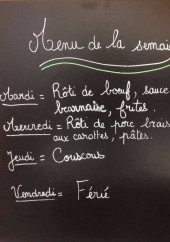 Menu de la semai
Mardi = Rôti de bœuf, sauce
bearnaise, frites.
Mercredi = Rôti de porc brais
aux carottes, pâtes.
Jeudi = Couscous
Vendredi = Férié